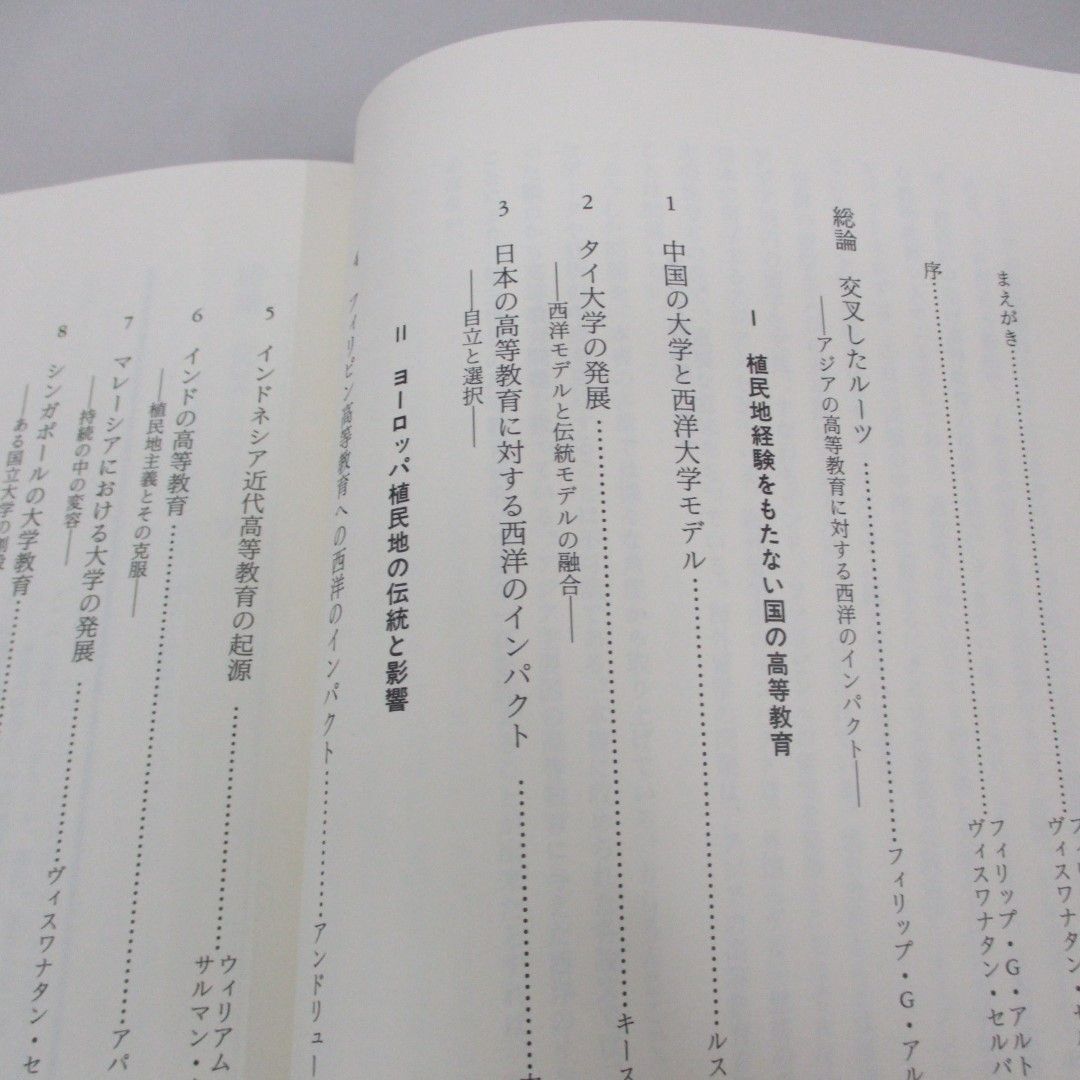 まえがき……………………フィリップ・G・
ヴィスワナタン・セ
序……………………フィリップ・G・アルト
ヴィスワナタン・セルバ
総論 交叉したルーツ……………………フィリップ・G・アル
——アジアの高等教育に対する西洋のインパクト——
I 植民地経験をもたない国の高等教育
1 中国の大学と西洋大学モデル……………………ルス
2 タイ大学の発展……………………キース
——西洋モデルと伝統モデルの融合——
3 日本の高等教育に対する西洋のインパクト……………………
——自立と選択——
II ヨーロッパ植民地の伝統と影響
4 フィリピン高等教育への西洋のインパクト……………………アンドリュー
5 インドネシア近代高等教育の起源……………………ウィリアム
サルマン・
6 インドの高等教育……………………
——植民地主義とその克服——
7 マレーシアにおける大学の発展……………………アパ
——持続の中の変容——
8 シンガポールの大学教育……………………ヴィスワナタン・セ
——ある国立大学の創設